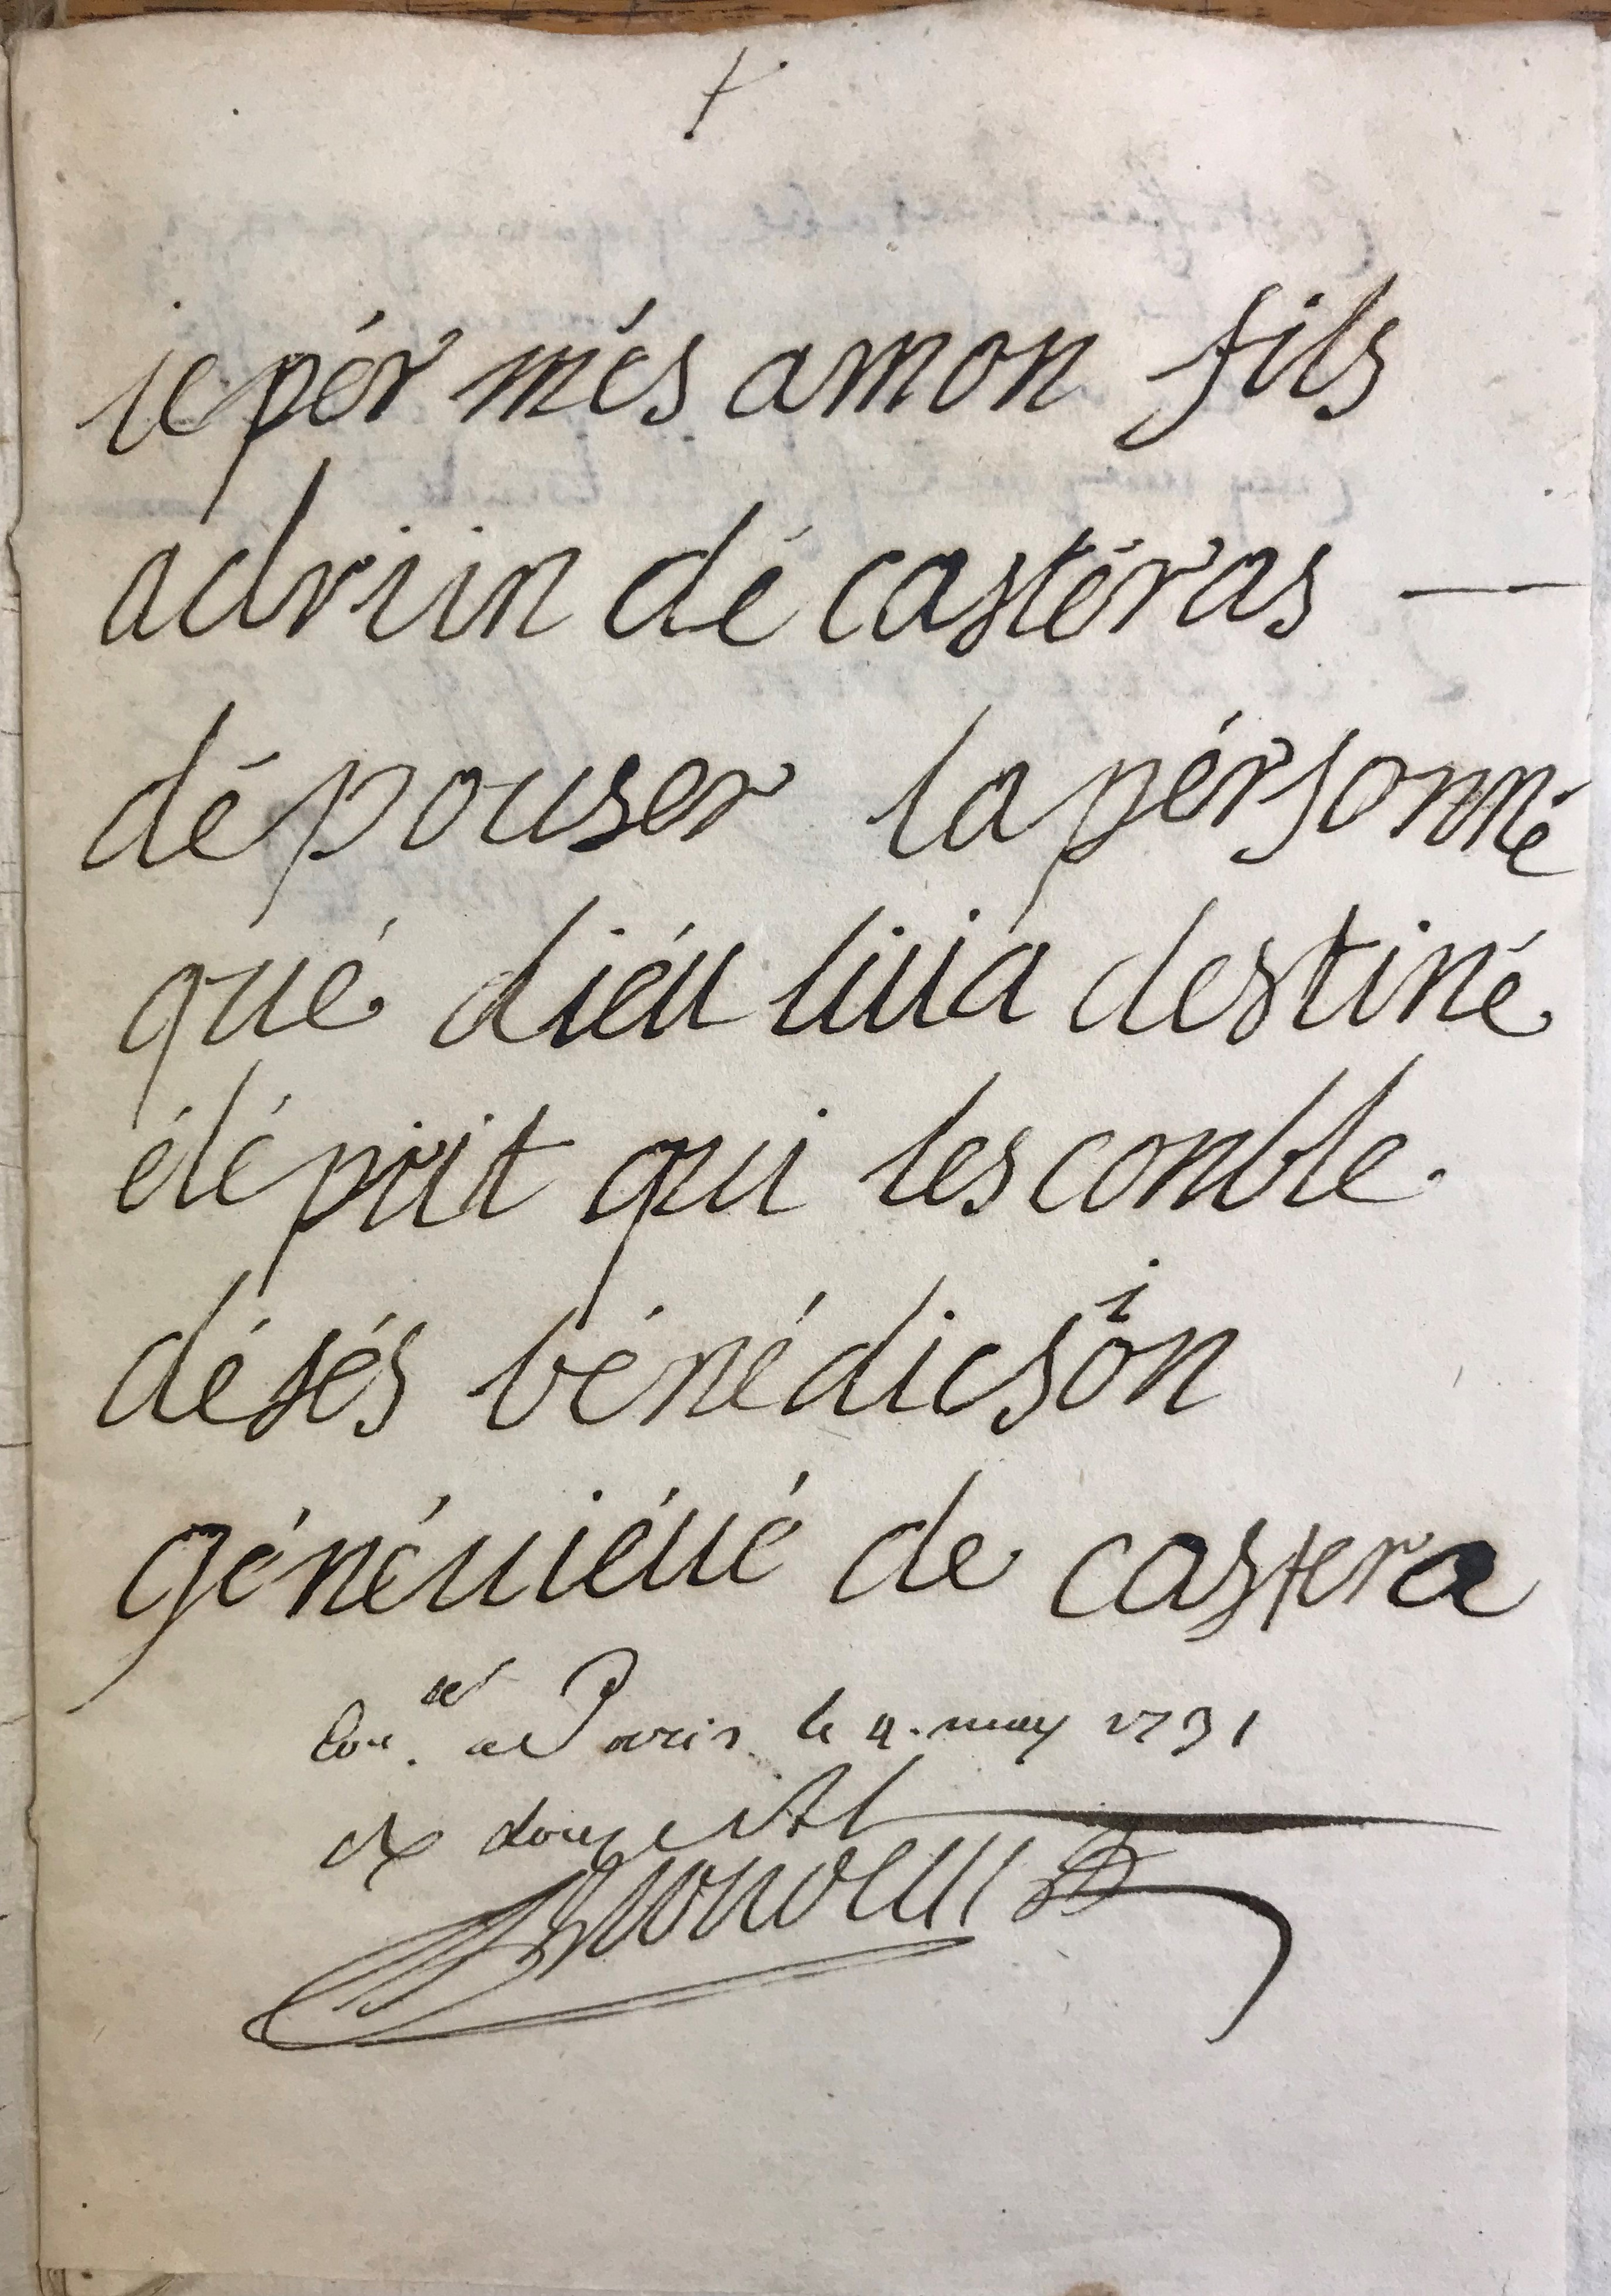 ie pér més amon fils
adriin dé castéras —
dé pouser la pérsonné
qué diéu luia destiné
élé priit qui les conble
dé sés bénédicsion
généuiéué de castera
Con.^{lé} a Paris le 4. may 1731